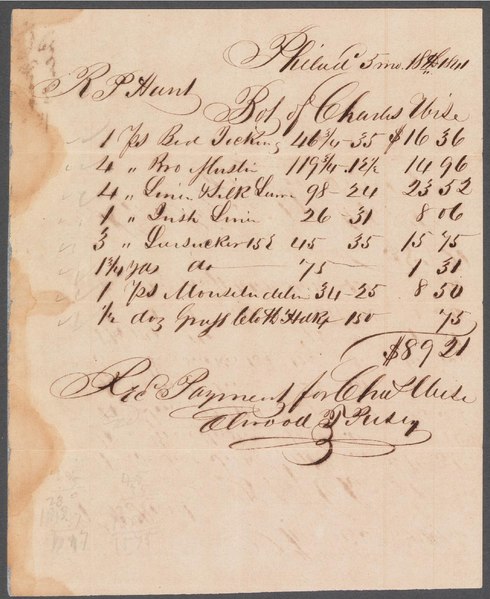 Philada 5 mo. 18th 1841
R P Hunt
Bot of Charles Wise
1 ps Bed Ticking 46 3/4 - 35 $16 36
4 " Bro Muslin 119 3/4 - 12 1/2 14 96
4 " Linen & Silk 98 - 24 23 52
1 " Irish Linen 26 - 31 8 06
3 " Seersucker 45 35 15 75
1 3/4 yds do 75 1 31
1 ps Mouselin delain 34 - 25 8 50
1/2 doz Grass Cloth Hdkfs 150 75
$89 21
Recd Payment for Chas Wise
Elwood T Pusey